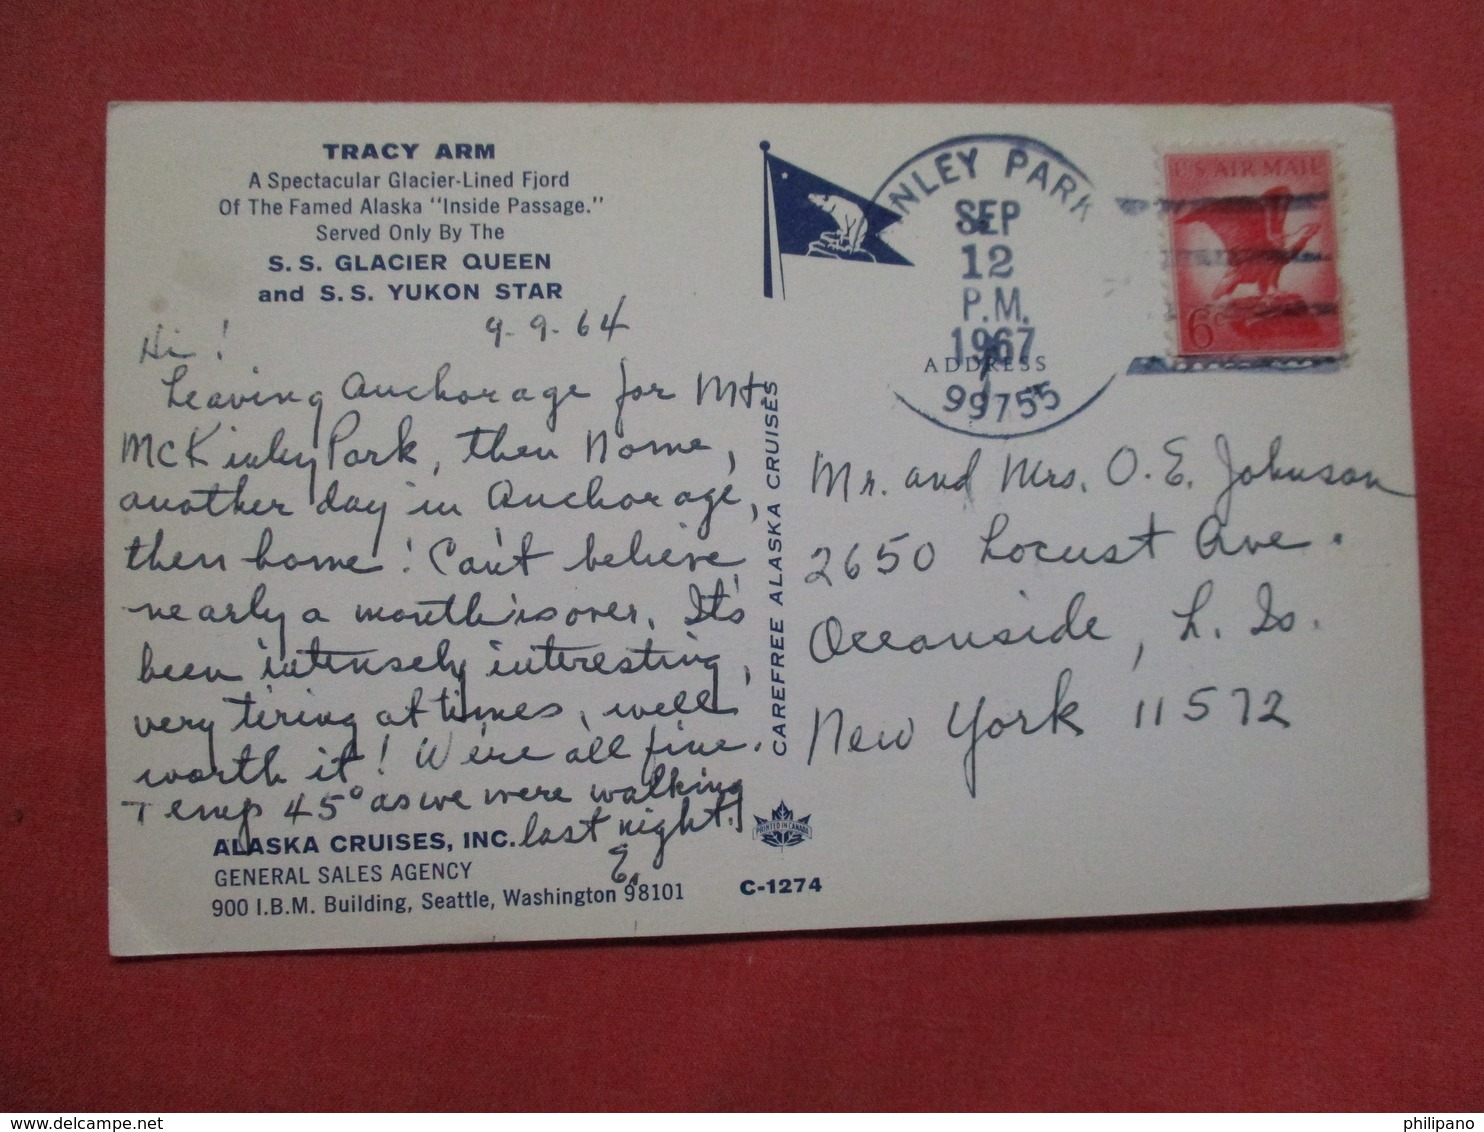 TRACY ARM
A Spectacular Glacier-Lined Fjord
Of The Famed Alaska "Inside Passage."
Served Only By The
S. S. GLACIER QUEEN
and S. S. YUKON STAR
9-9-64
Hi!
Leaving Anchorage for Mt.
McKinley Park, then Nome,
another day in Anchorage,
then home! Can't believe
nearly a month is over. It's
been intensely interesting,
very tiring at times, well
worth it! We're all fine.
Temp 45° as we were walking
last night.
E.
ALASKA CRUISES, INC.
GENERAL SALES AGENCY
900 I.B.M. Building, Seattle, Washington 98101
C-1274
CAREFREE ALASKA CRUISES
PRINTED IN CANADA
INLEY PARK
SEP
12
P.M.
1967
99755
ADDRESS
U S AIR MAIL
6c
Mr. and Mrs. O. E. Johnson
2650 Locust Ave.
Oceanside, L. Is.
New York 11572
philipano